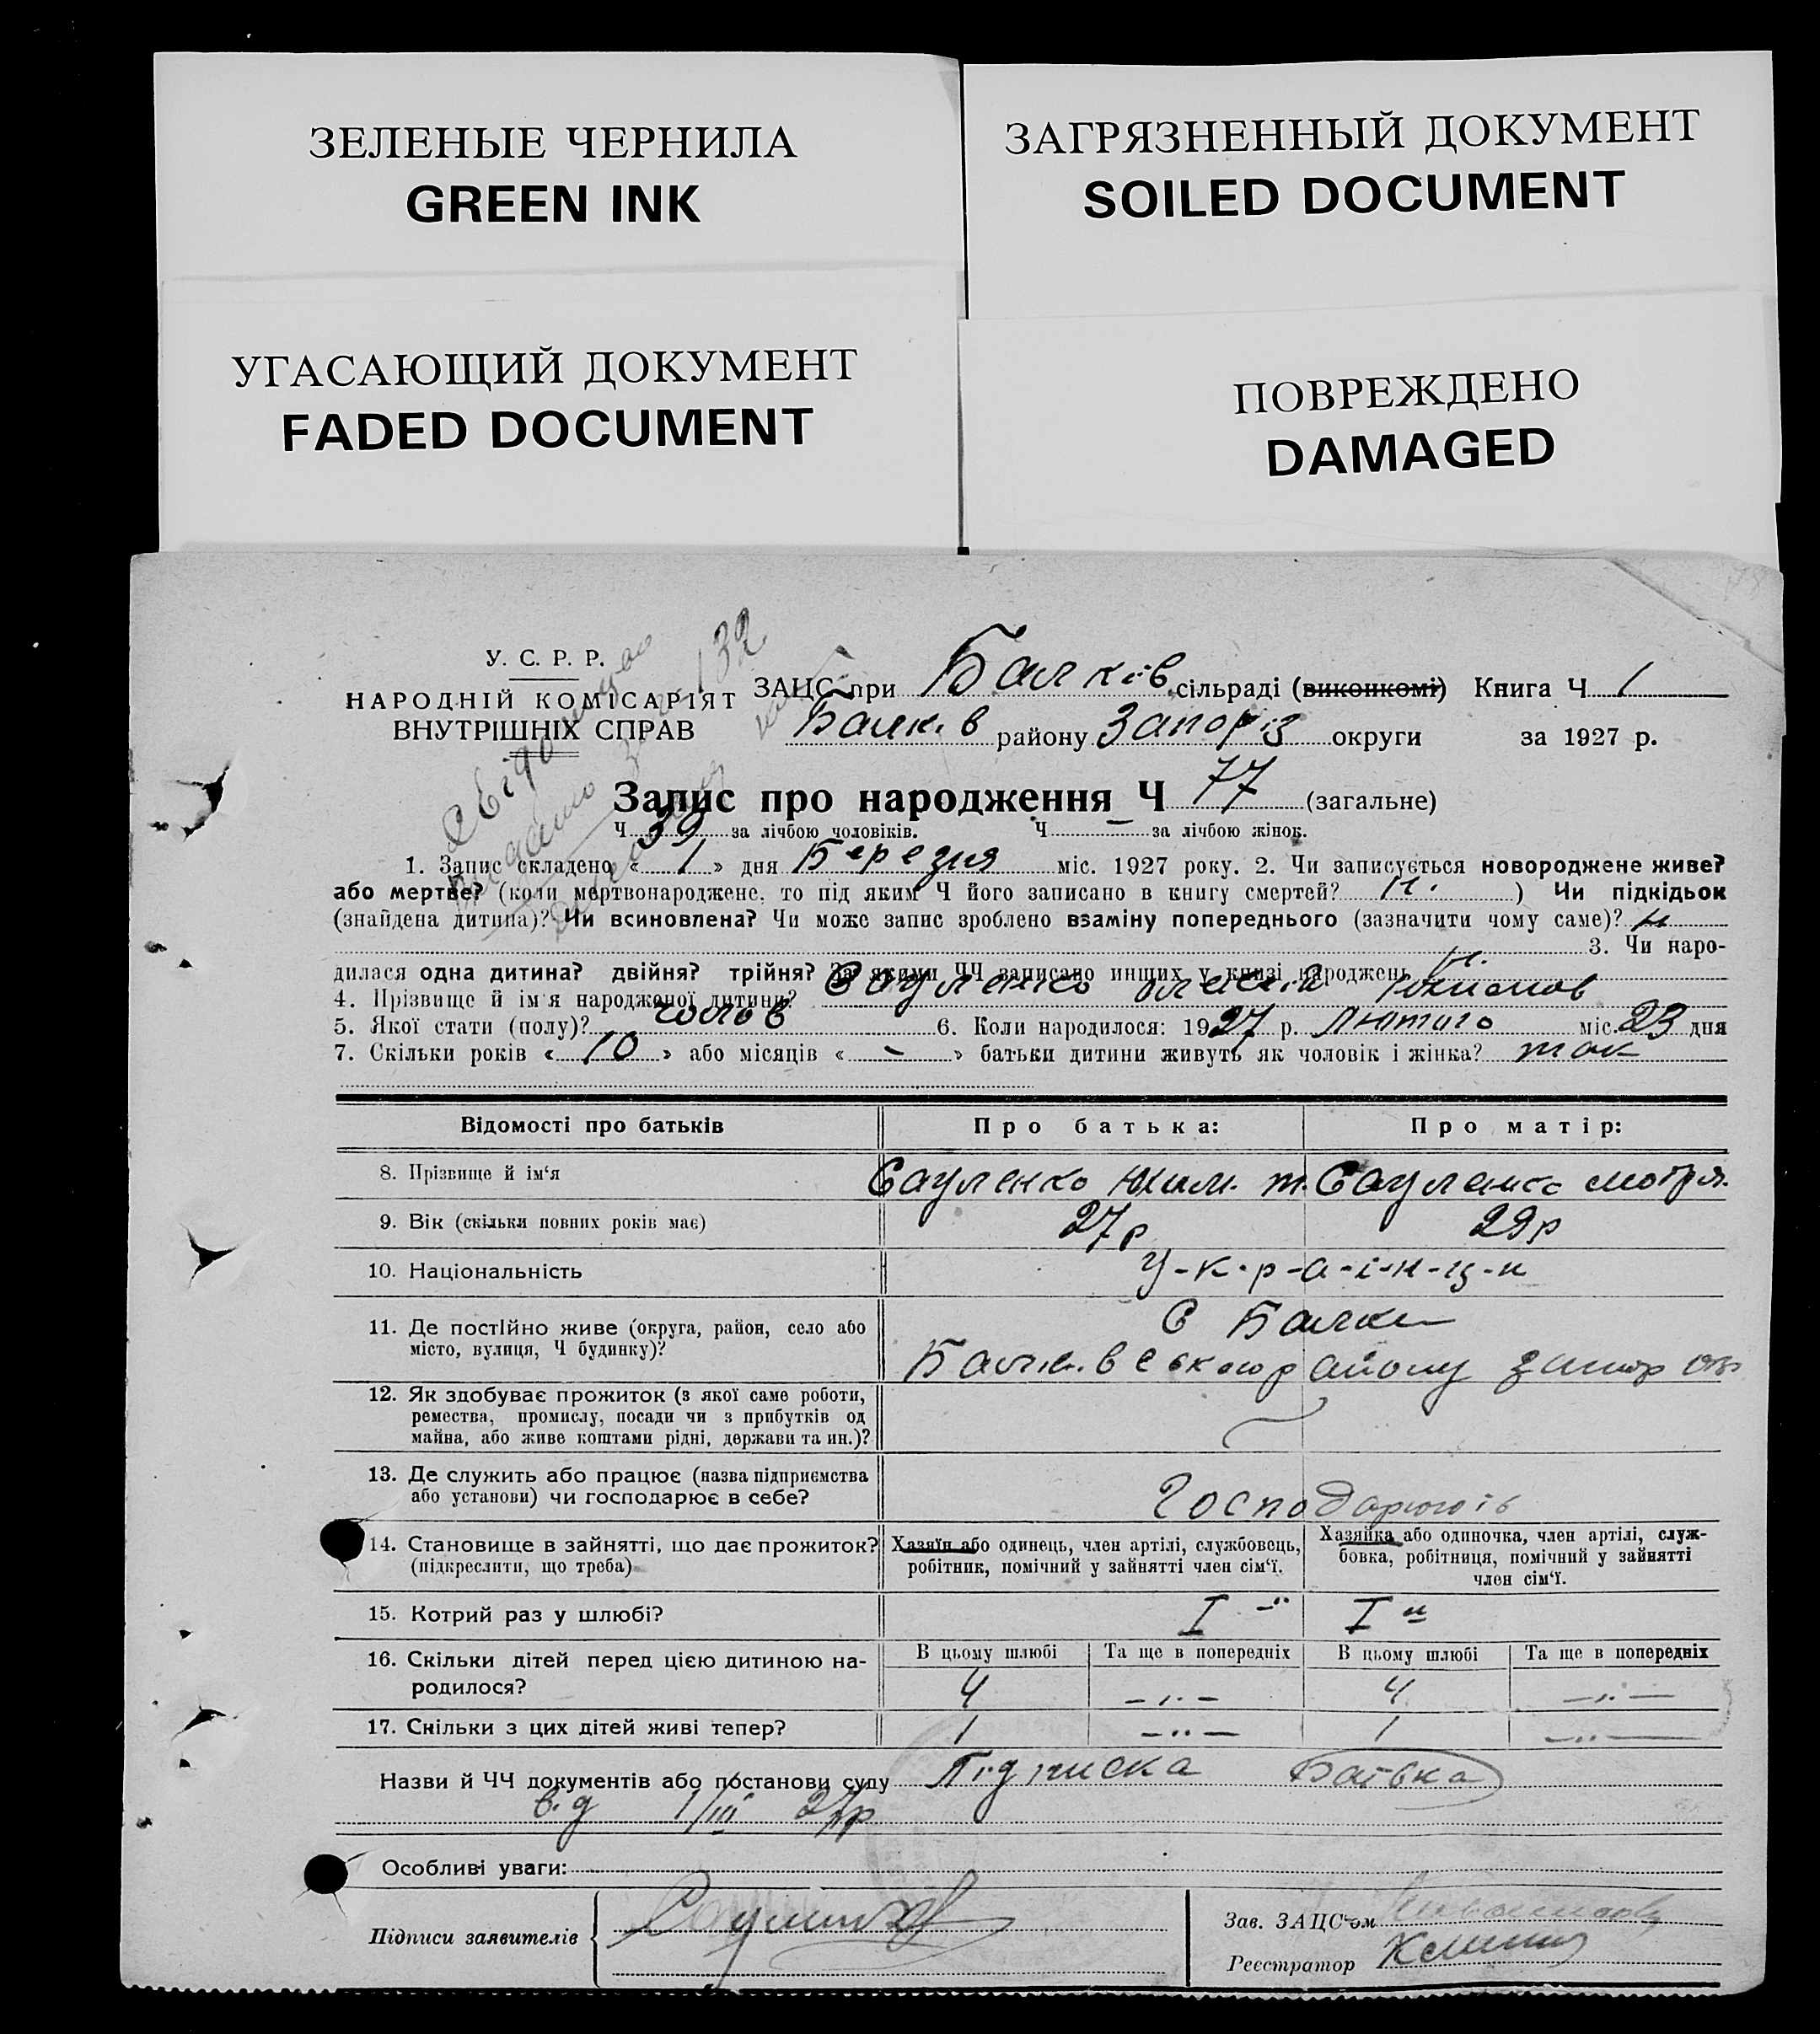 ЗЕЛЕНЫЕ ЧЕРНИЛА
GREEN INK
ЗАГРЯЗНЕННЫЙ ДОКУМЕНТ
SOILED DOCUMENT
УГАСАЮЩИЙ ДОКУМЕНТ
FADED DOCUMENT
ПОВРЕЖДЕНО
DAMAGED
У. С. Р. Р.
НАРОДНІЙ КОМІСАРІЯТ
ВНУТРІШНІХ СПРАВ
132
ЗАЦС при Балків сільраді (виконкомі) Книга Ч 1
Балк. в району Запоріз округи за 1927 р.
Запис про народження Ч 77 (загальне)
Ч 39 за лічбою чоловіків. Ч — за лічбою жінок.
1. Запис складено « 1 » дня Березня міс. 1927 року. 2. Чи записується новороджене живе?
або мертве? (коли мертвонароджене, то під яким Ч його записано в книгу смертей? н. ) Чи підкідьок
(знайдена дитина)? Чи всиновлена? Чи може запис зроблено взаміну попереднього (зазначити чому саме)? н
3. Чи наро-
дилася одна дитина? двійня? трійня? За якими ЧЧ записано инших у книзі народжень н.
4. Прізвище й ім'я народженої дитини? Сауленко
5. Якої стати (полу)? чолов 6. Коли народилося: 1927 р. Лютого міс. 23 дня
7. Скільки років « 10 » або місяців « - » батьки дитини живуть як чоловік і жінка? так
Відомості про батьків Про батька: Про матір:
8. Прізвище й ім'я Сауленко Юхим. т. Сауленко Мотря.
9. Вік (скільки повних років має) 27 р 29 р
10. Національність У-к-р-а-ї-н-ц-и
11. Де постійно живе (округа, район, село або
місто, вулиця, Ч будинку)?
С Балки
району
12. Як здобуває прожиток (з якої саме роботи,
ремества, промислу, посади чи з прибутків од
майна, або живе коштами рідні, держави та ин.)?
13. Де служить або працює (назва підприємства
або установи) чи господарює в себе?
14. Становище в зайнятті, що дає прожиток?
(підкреслити, що треба)
Хазяїн або одинець, член артілі, службовець,
робітник, помічний у зайнятті член сім'ї.
Хазяйка або одиночка, член артілі, служ-
бовка, робітниця, помічний у зайнятті
член сім'ї.
15. Котрий раз у шлюбі? I I й
16. Скільки дітей перед цією дитиною на-
родилося?
В цьому шлюбі Та ще в попередніх В цьому шлюбі Та ще в попередніх
4 —„— 4 —„—
17. Скільки з цих дітей живі тепер? 1 —„— 1 —„—
Назви й ЧЧ документів або постанови суду Підписка Батька
від 1/III 27 р
Особливі уваги:
Підписи заявителів
Зав. ЗАЦС'ом
Реєстратор